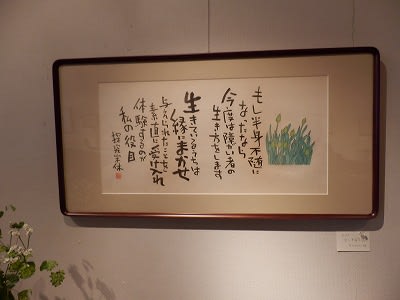 もし半身不随に
なったなら
今度は障がい者の
生き方をします
生きているうちは
縁にまかせ
与えられたことを
素直に受け入れ
体験するのが
私の役目